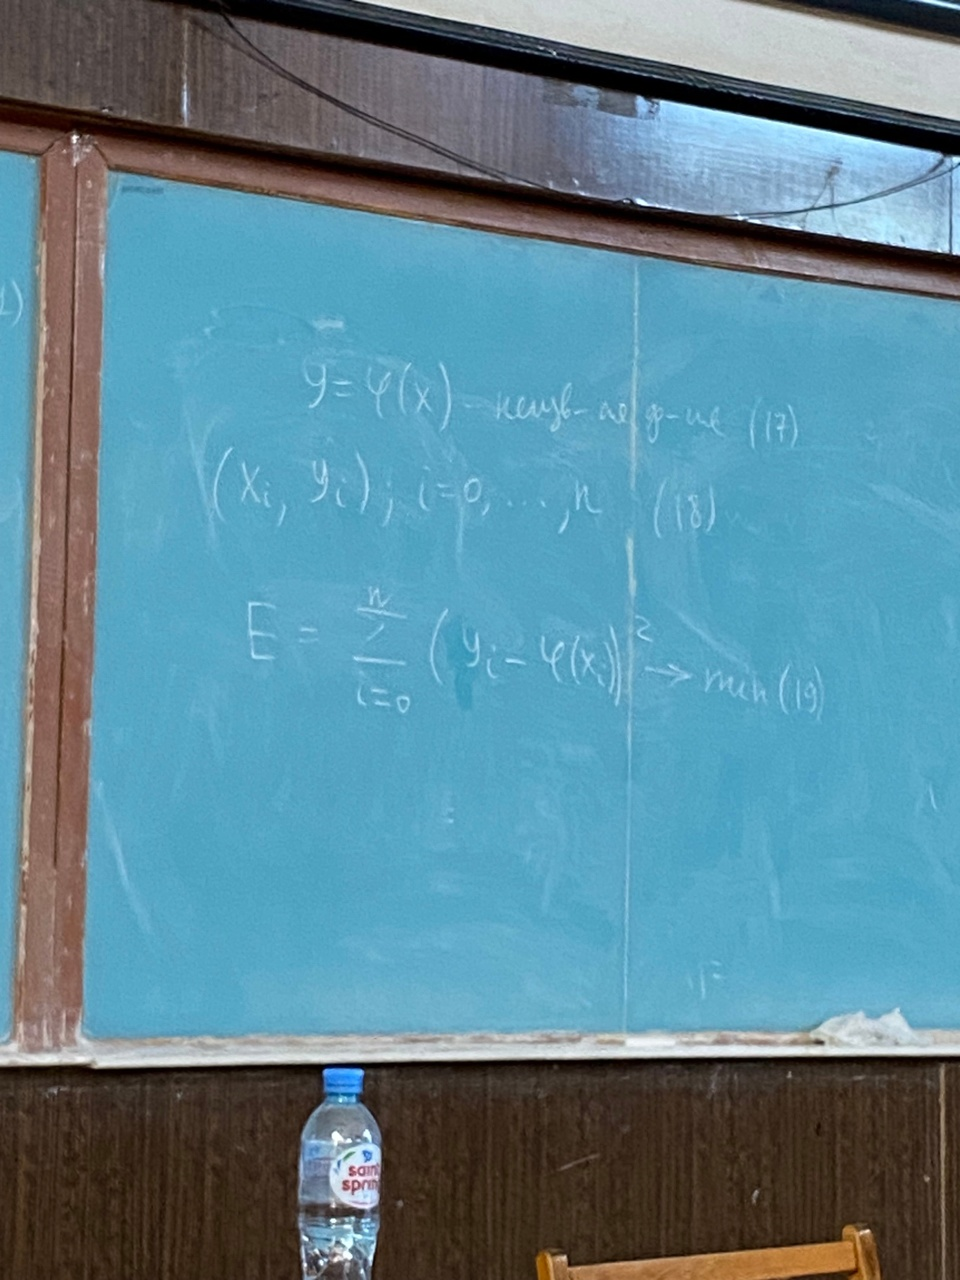 y = φ(x) – неизв-ая ф-ия (17)
(xᵢ, yᵢ); i=0, ..., n (18)
E = ∑ᵢ₌₀ⁿ (yᵢ – φ(xᵢ))² → min (19)
saint
spring